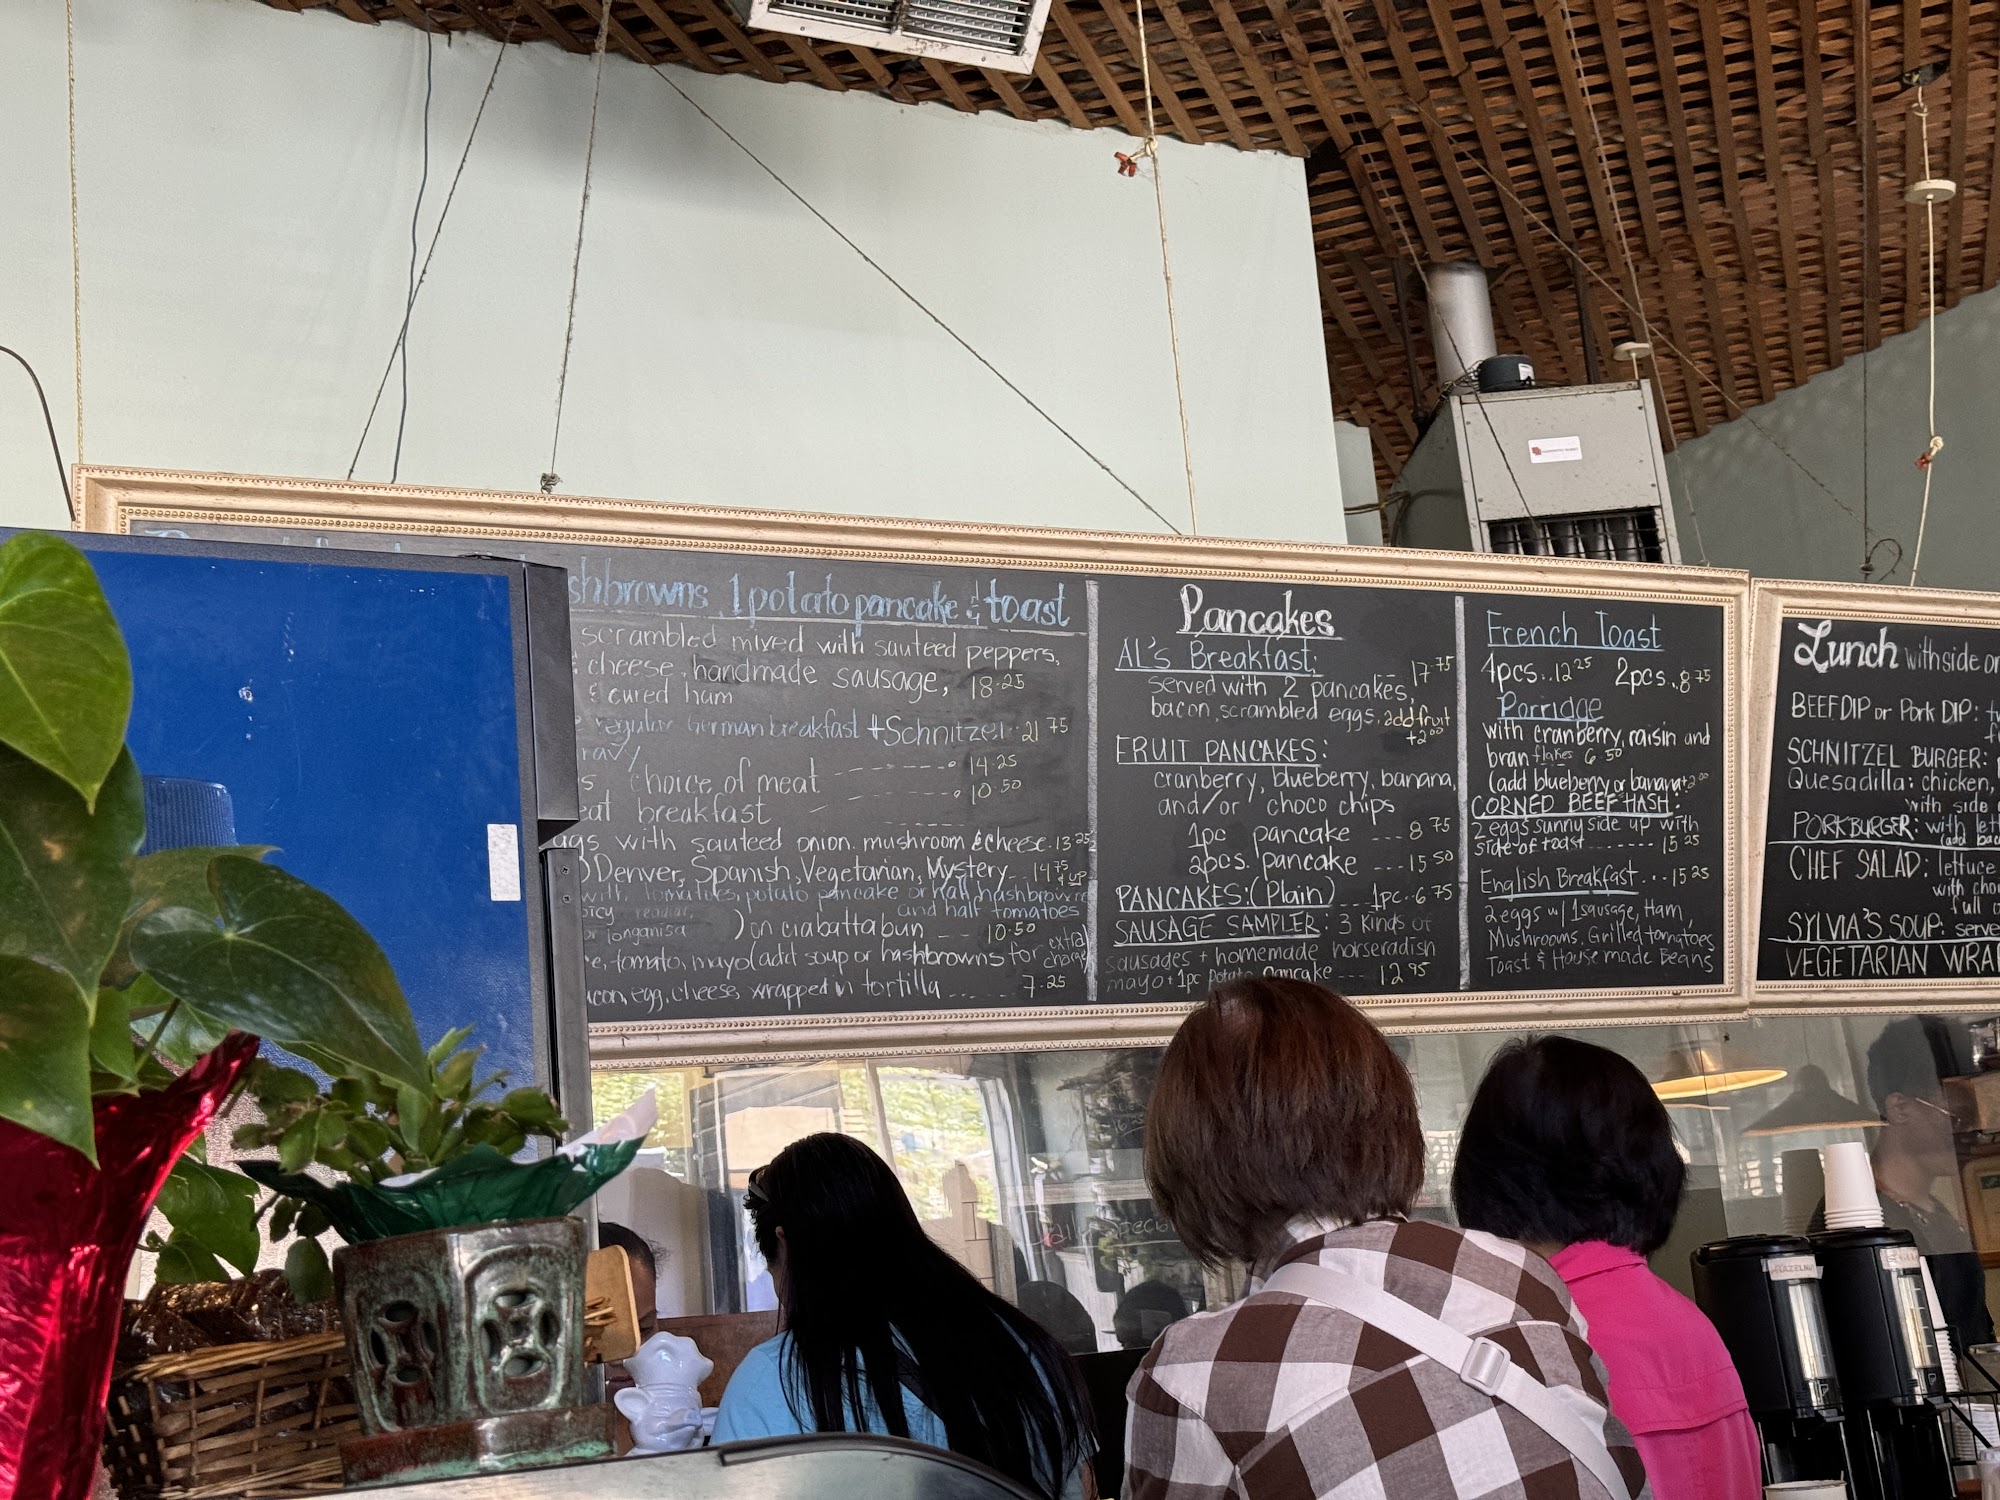 hbrowns, 1 potato pancake & toast
scrambled mixed with sauteed peppers,
cheese, handmade sausage, 18.25
& cured ham
regular German breakfast + Schnitzel 21 75
ravy
choice of meat 14.25
eat breakfast 10.50
ggs with sauteed onion, mushroom & cheese. 13 25
) Denver, Spanish, Vegetarian, Mystery 14 75 & up
with tomatoes, potato pancake or half hashbrowns
and half tomatoes
picy regular,
or longanisa ) on ciabatta bun -- 10.50
e, tomato, mayo (add soup or hashbrowns for extra charge)
acon, egg, cheese, wrapped in tortilla ...... 7.25
Pancakes
AL'S Breakfast: 17 75
served with 2 pancakes,
bacon, scrambled eggs. add fruit +2 00
FRUIT PANCAKES:
cranberry, blueberry, banana,
and/or choco chips
1pc pancake --- 8 75
2pcs. pancake --- 15 50
PANCAKES: (Plain) --- 1pc. 6 75
SAUSAGE SAMPLER: 3 kinds of
sausages + homemade horseradish
mayo + 1pc Potato Pancake --- 12 95
French Toast
4pcs... 12 25 2pcs.. 8 75
Porridge
with cranberry, raisin and
bran flakes 6 50
(add blueberry or banana +2 00
CORNED BEEF HASH:
2 eggs sunny side up with
side of toast ....... 15 25
English Breakfast ... 15 25
2 eggs w/ 1 sausage, Ham,
Mushrooms, Grilled tomatoes
Toast & House made Beans
Lunch with side or
BEEF DIP or Pork DIP:
SCHNITZEL BURGER:
Quesadilla: chicken,
with side
PORK BURGER: with lett
(add bac
CHEF SALAD: lettuce
with cho
full
SYLVIA'S SOUP: serve
VEGETARIAN WRA